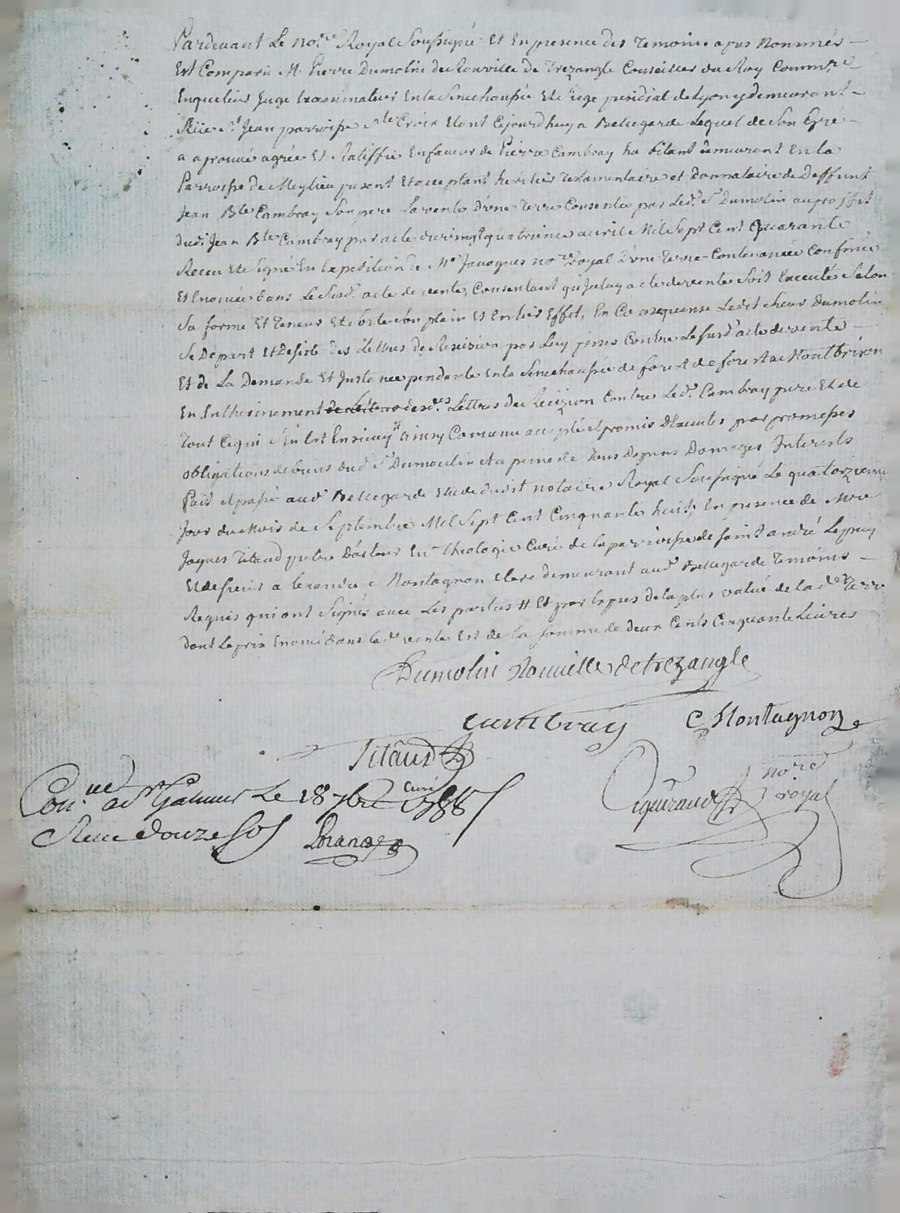 Pardevant Le No.re Royal Soussigné Et En presence des Temoins apres Nommés
Est Comparu M. Pierre Dumolin de Rouville de Trezangle Conseiller du Roy Comm.re
Enqueteur Juge Examinateur En la Senechaussée Et siege presidial de Lyon y demeurant
Rüe S.t Jean parroisse S.te Croix Etant Cejourdhuy a Bellegarde Lequel de Son Gyre
a aprouvé agréé Et Ratiffié En faveur de Pierre Cambray demeurant En la
Parroisse de Meylieu present Et acceptant heritier Testamentaire et donnataire de Deffunt
Jean B.te Cambray Son pere La vente D'une Terre Consentie par Led. S.r Dumolin au proffit
dud. Jean B.te Cambray par acte du vingt quatrieme avril Mil Sept Cent Quarante
Receu Et Signé En Expedition de M.e Javogues no.re royal D'une Terre Contenance Confinée
Et Enoncée dans Le Susd. acte de vente, Consentant qu'Iceluy acte de vente Soit Executé Selon
Sa forme Et Teneur Et Sorte Son plain Et Entier Effet, En Consequense Ledit Sieur Dumolin
Se Depart Et Desiste des Lettres de Rescision par Luy prises Contre Le Susd. acte de vente
Et de La Demande Et Instance pendante En la Senechaussée de forest de forest a Montbrison
En Entherinement desd.s Lettres de Recizion Contre Led. Cambray pere Et de
Tout Ce qui S'en Est Ensuivy accepté et promis D'Executer par promesses
obligations de biens dud. S.r Dumoulin Et a peine de Tous Depens Domages Interests
Fait et passé aud. Bellegarde Etude dudit notaire Royal Soussigné Le quatorzieme
Jour du Mois de Septembre Mil Sept Cent Cinquante huit, En presence de M.re
Jaques Titaud pretre Docteur En Theologie Curé de la parroisse de Saint André Le puy
Et de Montagnon Clerc demeurant aud. Bellegarde Temoins
Requis qui ont Signés avec Les parties Et par Expres de la plus value de la d.te Terre
dont Le prix Enoncé dans la d.te vente Est de la Somme de deux Cents Cinquante Livres
Dumolin Rouville de trezangle
cambray C Montagnon
Titaud
curé
no.re
royal
Con.lle a S.t Galmier Le 18 7bre 1758
Receu douze sols